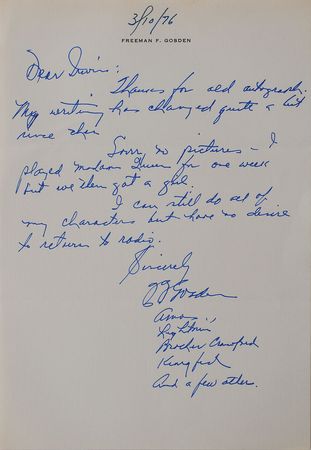 3/10/76
FREEMAN F. GOSDEN
Dear Irwin:
Thanks for old autograph.
My writing has changed quite a bit
since then.
Sorry, no pictures - I
played Madam Queen for one week
but we then got a girl.
I can still do all of
my characters but have no desire
to return to radio.
Sincerely
FF Gosden
Amos
Lightnin'
Brother Crawford
Kingfish
And a few others.